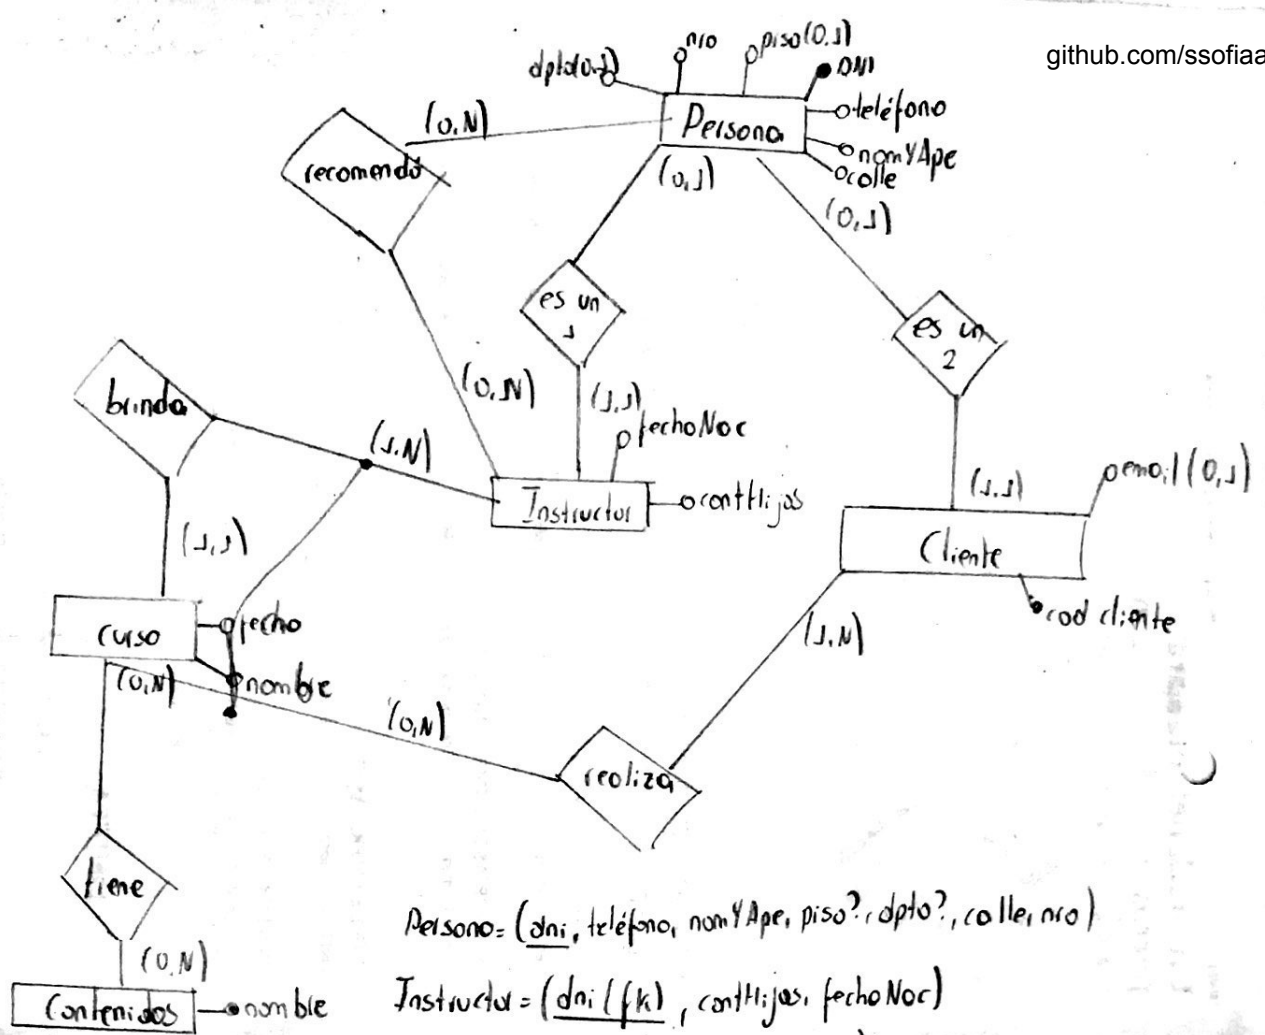 github.com/ssofiaa
nro
piso(0,1)
dpto(0,1)
DNI
teléfono
Persona
nomYApe
calle
(0,N)
recomendó
(0,1)
(0,1)
es un
1
es un
2
(0,N)
(1,1)
fechaNac
brinda
(1,N)
cantHijos
Instructor
(1,1)
email(0,1)
(1,1)
Cliente
cod cliente
curso
fecha
nombre
(0,N)
(0,N)
(1,N)
realiza
tiene
(0,N)
Contenidos
nombre
Persona= (dni, teléfono, nomYApe, piso?, dpto?, calle, nro)
Instructor= (dni(fk), cantHijos, fechaNac)